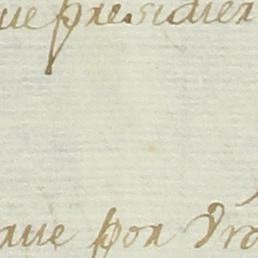 ue presidier
nue por Pro